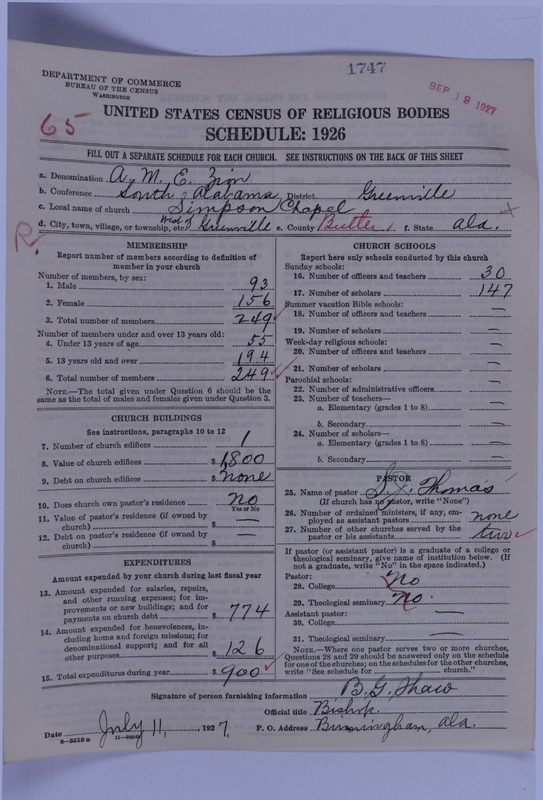 1747
DEPARTMENT OF COMMERCE
BUREAU OF THE CENSUS
WASHINGTON
SEP 19 1927
65
UNITED STATES CENSUS OF RELIGIOUS BODIES
SCHEDULE: 1926
FILL OUT A SEPARATE SCHEDULE FOR EACH CHURCH. SEE INSTRUCTIONS ON THE BACK OF THIS SHEET
a. Denomination A. M. E. Zion
b. Conference South Alabama District Greenville
c. Local name of church Simpson Chapel
d. City, town, village, or township, etc. West of Greenville e. County Butler f. State Ala.
R
MEMBERSHIP
Report number of members according to definition of
member in your church
Number of members, by sex:
1. Male 93
2. Female 156
3. Total number of members 249
Number of members under and over 13 years old:
4. Under 13 years of age 55
5. 13 years old and over 194
6. Total number of members 249
NOTE.—The total given under Question 6 should be the
same as the total of males and females given under Question 3.
CHURCH BUILDINGS
See instructions, paragraphs 10 to 12
7. Number of church edifices 1
8. Value of church edifices $ 1,800
9. Debt on church edifices $ none
10. Does church own pastor's residence no
Yes or No
11. Value of pastor's residence (if owned by
church) $ —
12. Debt on pastor's residence (if owned by
church) $ —
EXPENDITURES
Amount expended by your church during last fiscal year
13. Amount expended for salaries, repairs,
and other running expenses; for im-
provements or new buildings; and for
payments on church debt $ 774
14. Amount expended for benevolences, in-
cluding home and foreign missions; for
denominational support; and for all
other purposes $ 126
15. Total expenditures during year $ 900
CHURCH SCHOOLS
Report here only schools conducted by this church
Sunday schools:
16. Number of officers and teachers 30
17. Number of scholars 147
Summer vacation Bible schools:
18. Number of officers and teachers —
19. Number of scholars —
Week-day religious schools:
20. Number of officers and teachers —
21. Number of scholars —
Parochial schools:
22. Number of administrative officers —
23. Number of teachers—
a. Elementary (grades 1 to 8) —
b. Secondary —
24. Number of scholars—
a. Elementary (grades 1 to 8) —
b. Secondary —
PASTOR
25. Name of pastor Thomas
(If church has no pastor, write "None")
26. Number of ordained ministers, if any, em-
ployed as assistant pastors none
27. Number of other churches served by the
pastor or his assistants two
If pastor (or assistant pastor) is a graduate of a college or
theological seminary, give name of institution below. (If
not a graduate, write "No" in the space indicated.)
Pastor:
28. College No
29. Theological seminary No.
Assistant pastor:
30. College —
31. Theological seminary —
NOTE.—Where one pastor serves two or more churches,
Questions 28 and 29 should be answered only on the schedule
for one of the churches; on the schedules for the other churches,
write "See schedule for church."
Signature of person furnishing information B. G. Shaw
Official title Bishop.
Date July 11, 1927. P. O. Address Birmingham, Ala.